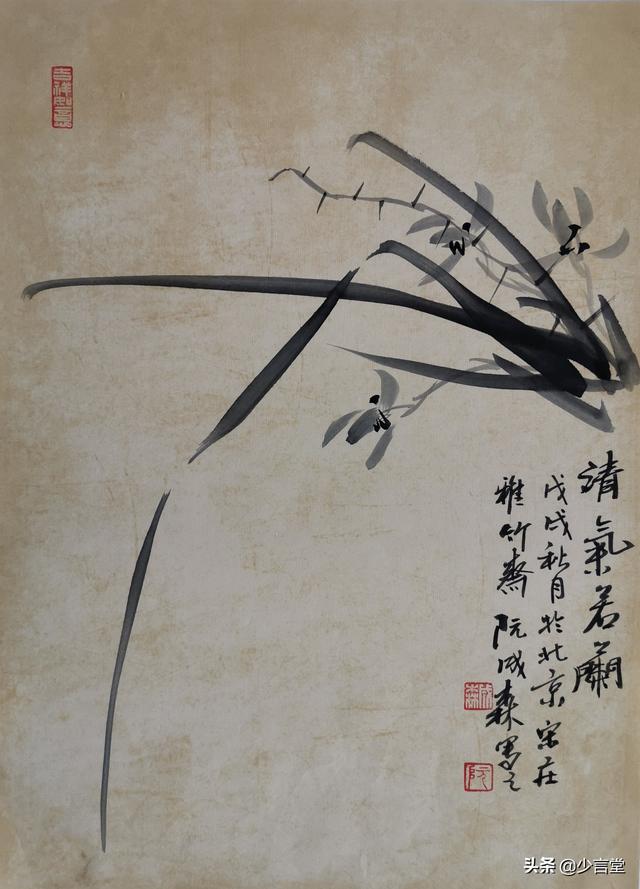 清氣若蘭
戊戌秋月於北京宋莊
雅竹齋阮成森寫之
吉祥如意
成森
阮
头条 @少言堂